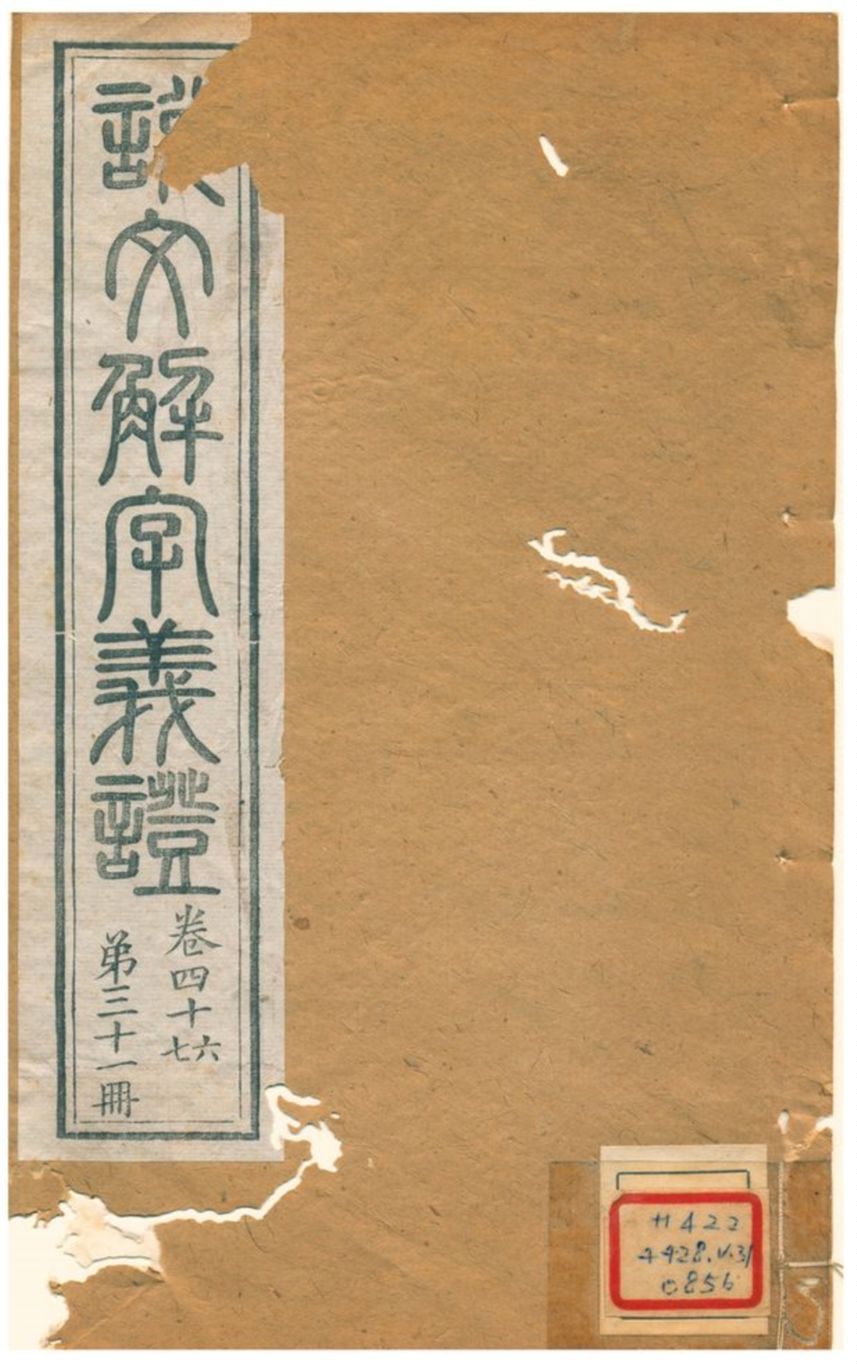 說文解字義證
卷四十六七
第三十一冊
H422
4428.V.31
0856